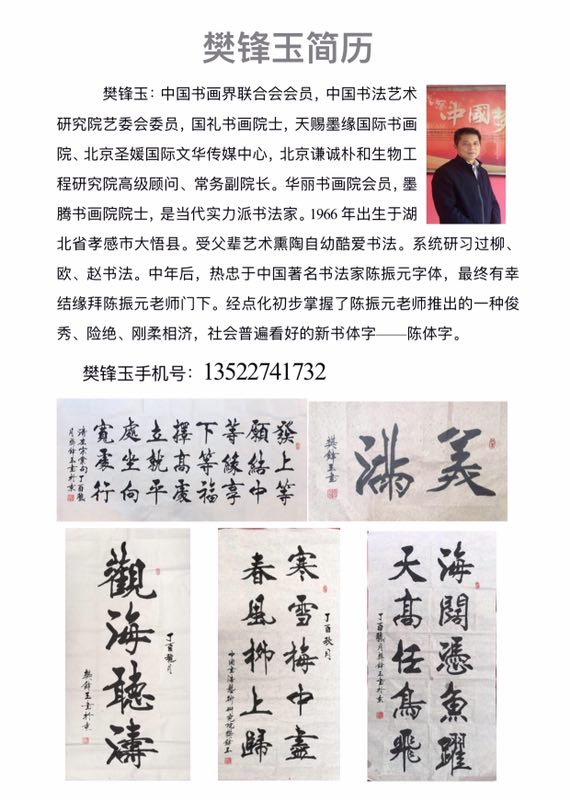 樊锋玉简历
樊锋玉：中国书画界联合会会员，中国书法艺术
研究院艺委会委员，国礼书画院士，天赐墨缘国际书画
院、北京圣媛国际文华传媒中心，北京谦诚朴和生物工
程研究院高级顾问、常务副院长。华丽书画院会员，墨
腾书画院院士，是当代实力派书法家。1966 年出生于湖
北省孝感市大悟县。受父辈艺术熏陶自幼酷爱书法。系统研习过柳、
欧、赵书法。中年后，热忠于中国著名书法家陈振元字体，最终有幸
结缘拜陈振元老师门下。经点化初步掌握了陈振元老师推出的一种俊
秀、险绝、刚柔相济，社会普遍看好的新书体字——陈体字。
樊锋玉手机号：13522741732
中國夢
發上等
願結中
等緣享
下等福
擇高處
立就平
處坐向
寬處行
美满
樊鋒玉書
觀海聽濤
樊鋒玉書於京
寒雪梅中盡
春風柳上歸
丁酉秋月
中國書法藝術研究院樊鋒玉
海闊憑魚躍
天高任鳥飛